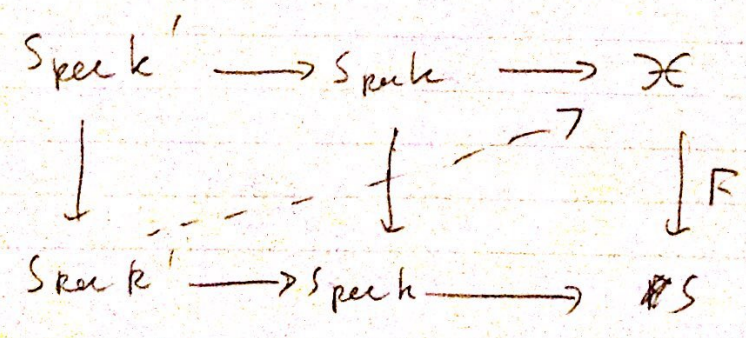 Spec k' → Spec k → 𝒳
F
Spec R' → Spec R → S